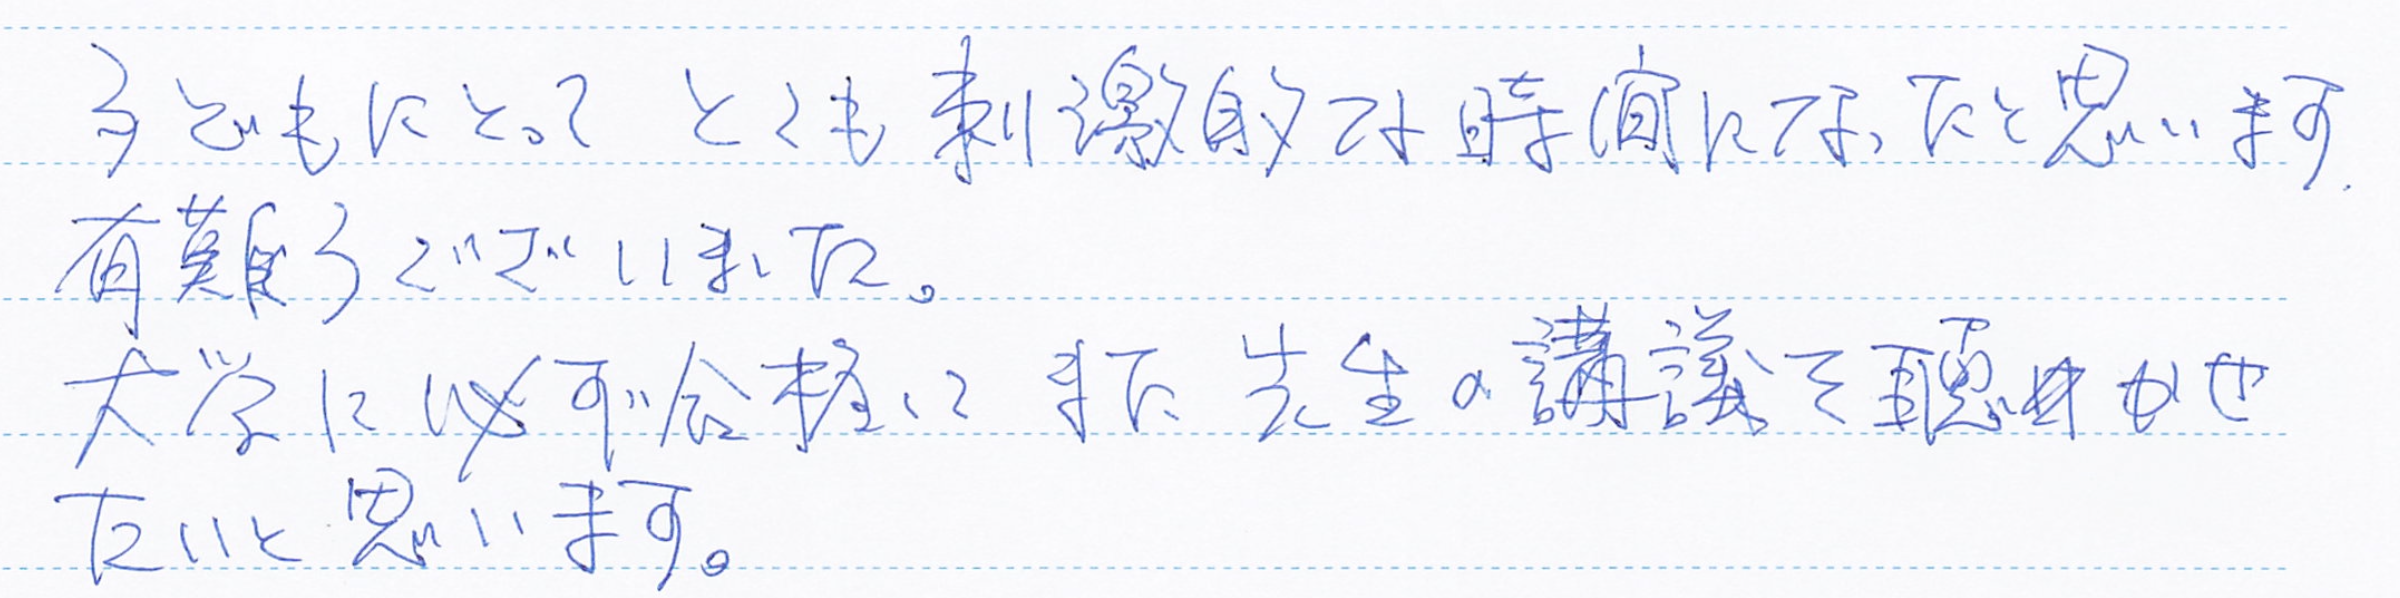 子どもにとって とても刺激的な時間になったと思います.
有難うございました。
大学に必ず合格して また 先生の講義を聴かせ
たいと思います。